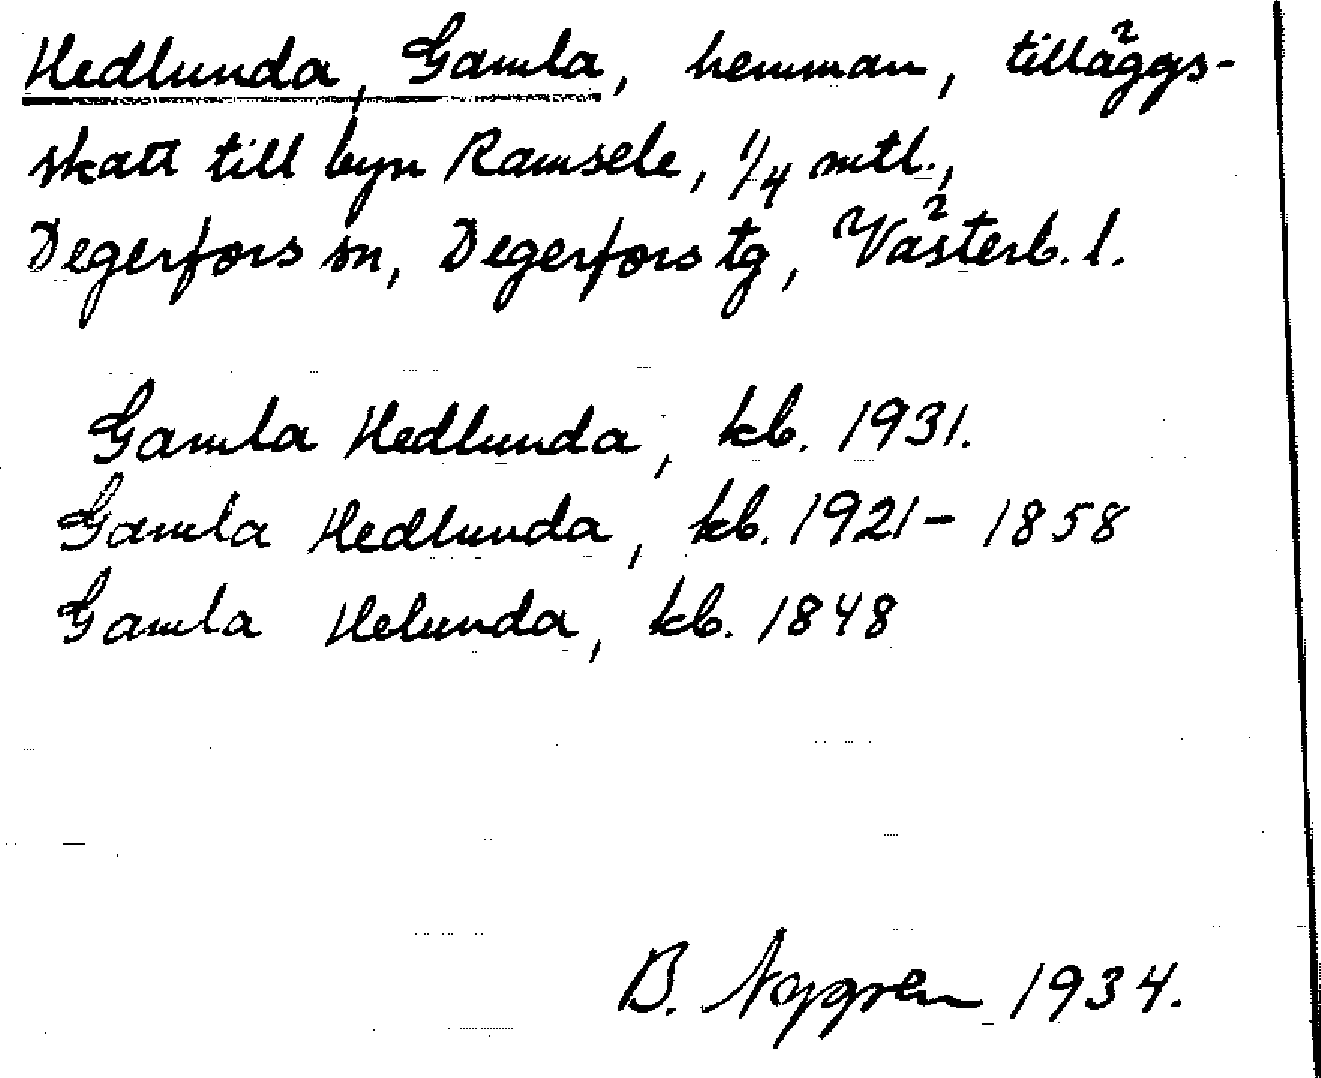 Hedlunda, Gamla, hemman, tilläggs-
skatt till byn Ramsele, 1/4 mtl.,
Degerfors sn, Degerfors tg, Västerb. l.
Gamla Hedlunda, kb. 1931.
Gamla Hedlunda, kb. 1921 - 1858
Gamla Helunda, kb. 1848
B. Nygren 1934.